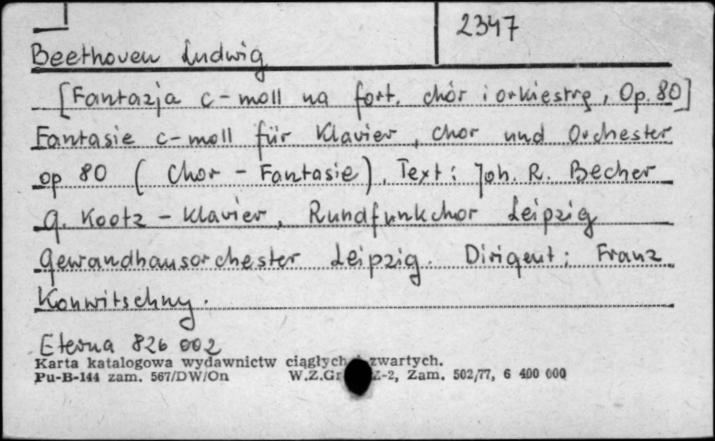 2347
Beethoven Ludwig
[Fantazja c-moll na fort. chór i orkiestrę, Op. 80]
Fantasie c-moll für Klavier, Chor und Orchester
op 80 ( Chor - Fantasie). Text: Joh. R. Becher
G. Kootz - Klavier, Rundfunkchor Leipzig
Gewandhausorchester Leipzig. Dirigent: Franz
Konwitschny.
Eterna 826 002
Karta katalogowa wydawnictw ciągłych i zwartych.
Pu-B-144 zam. 567/DW/On W.Z.Gr Z-2, Zam. 502/77, 6 400 000